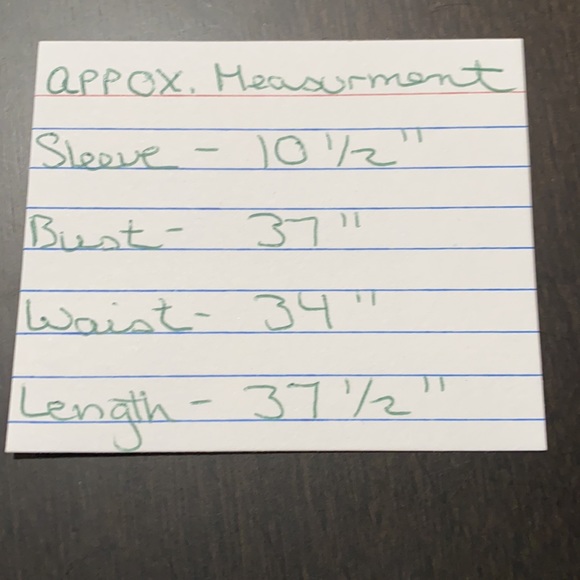 APPOX. Measurment
Sleeve - 10 1/2"
Bust- 37"
Waist- 34"
Length - 37 1/2"